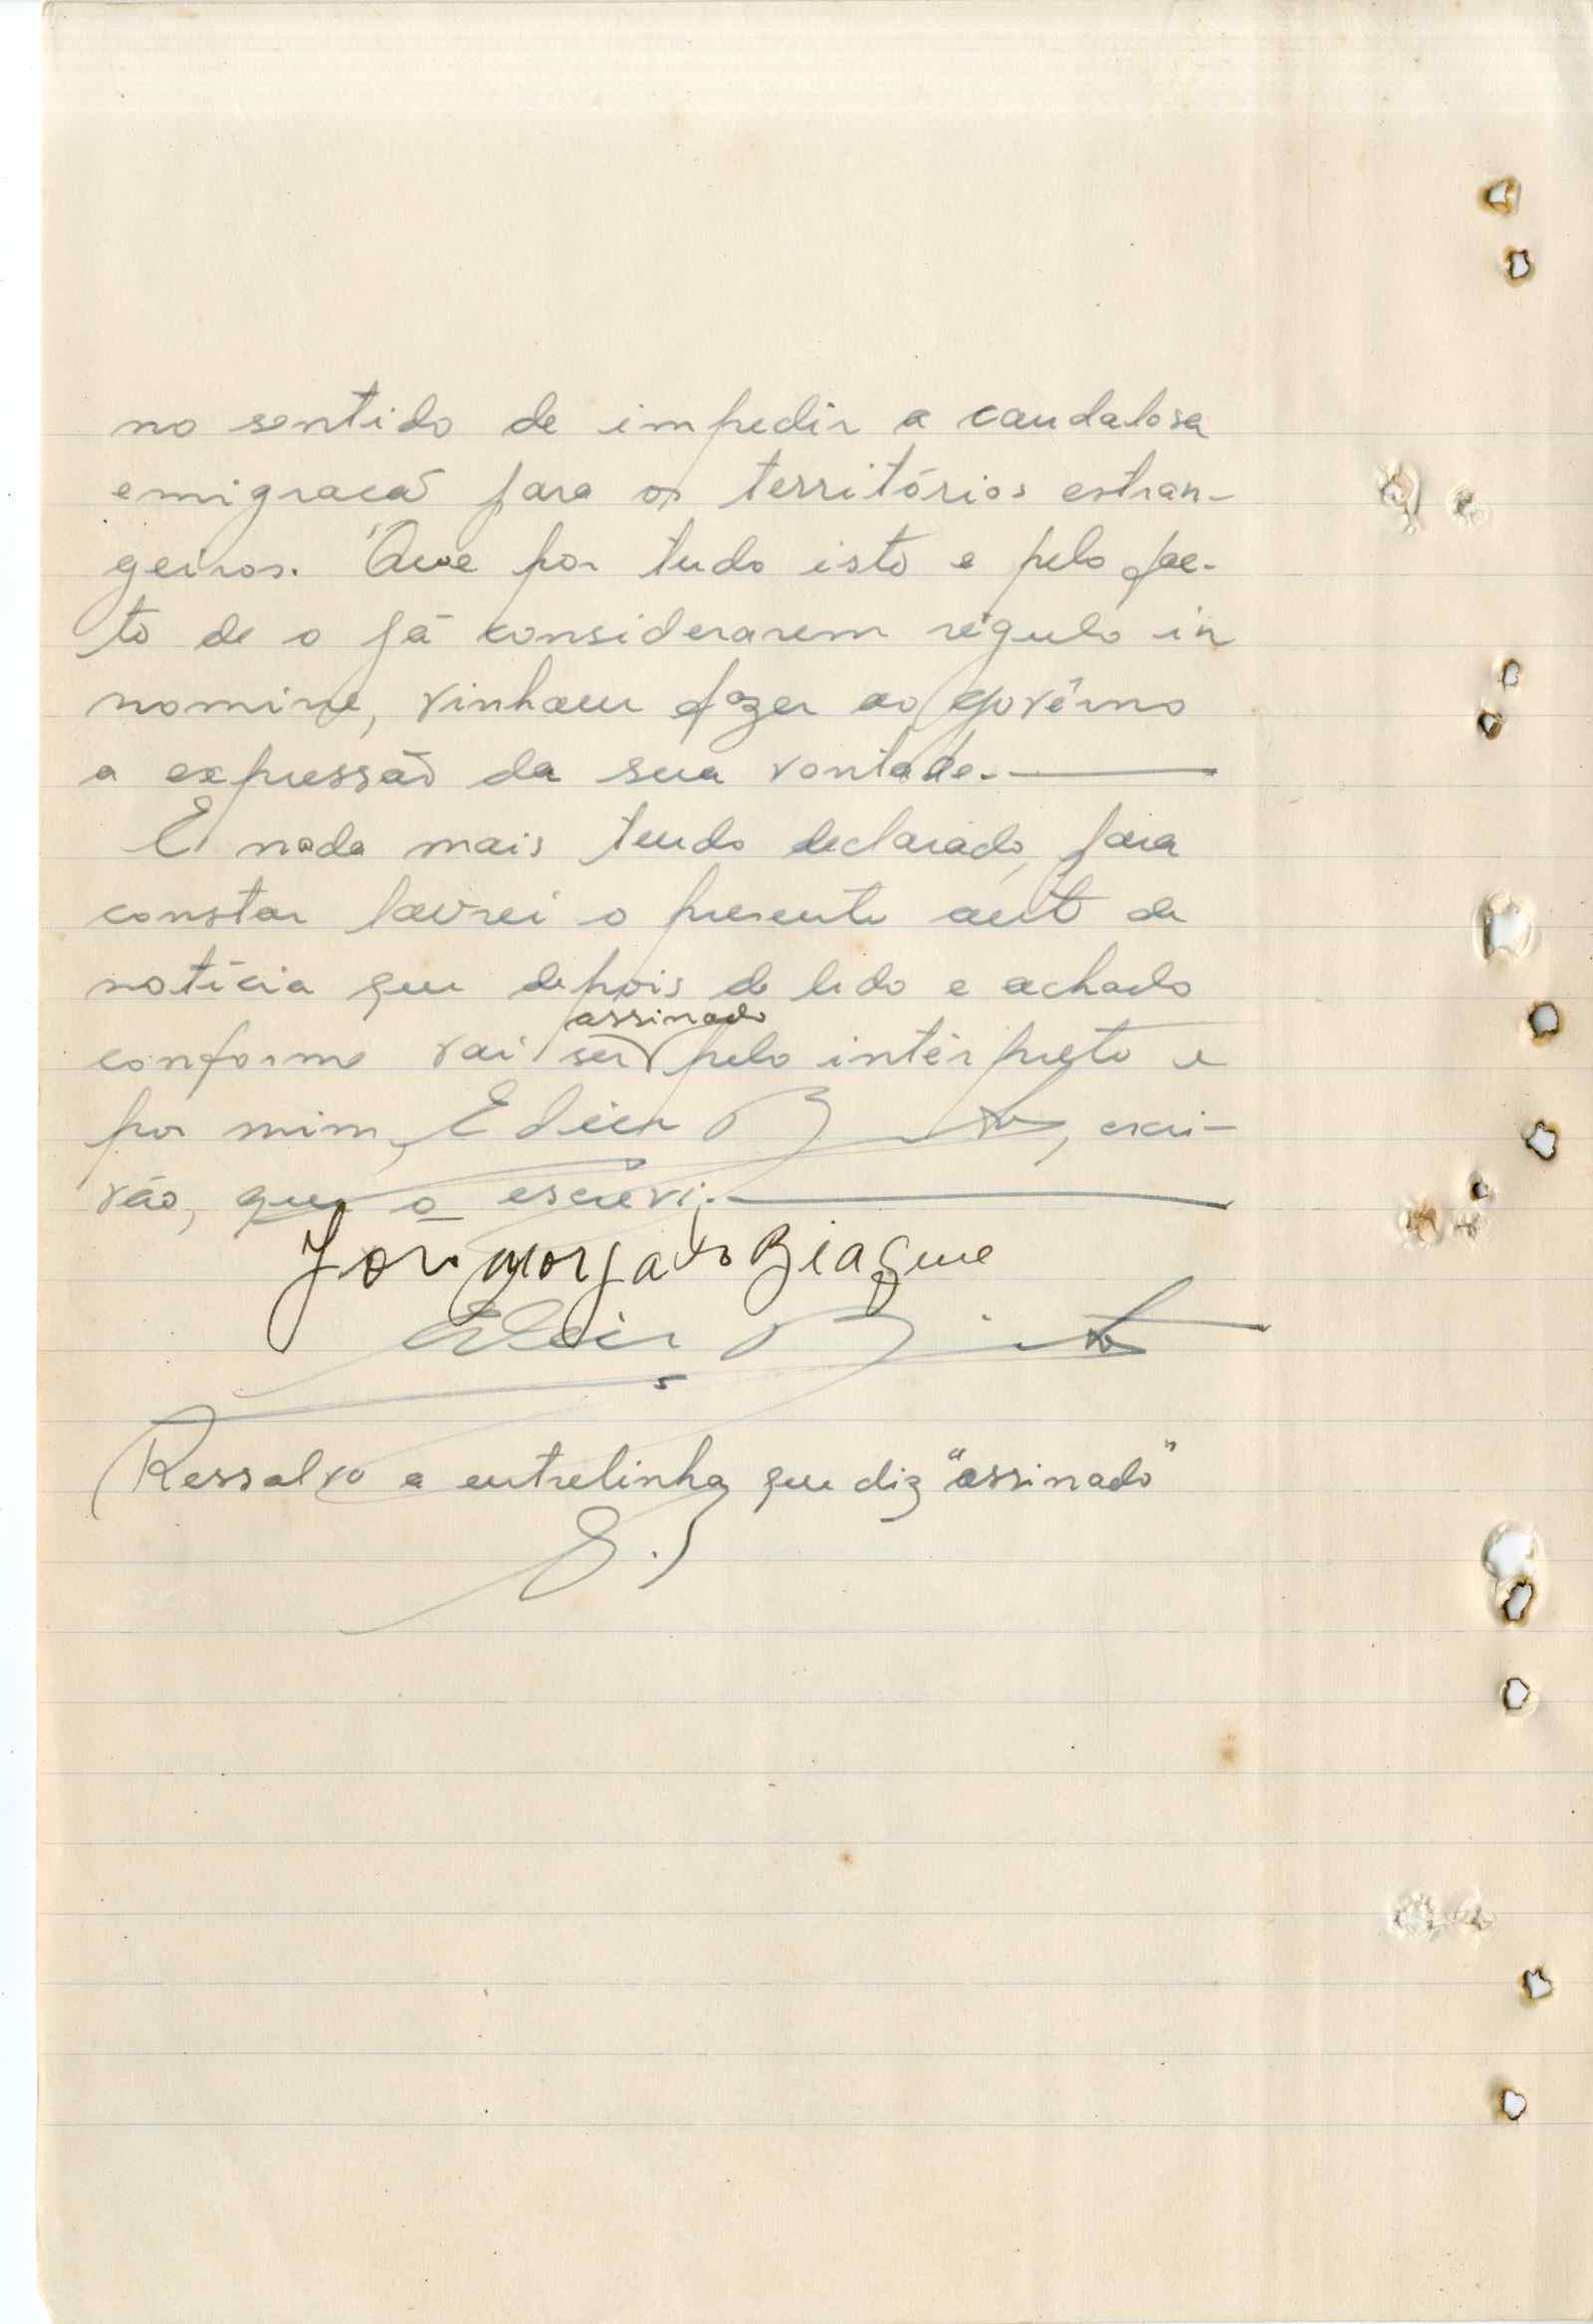 no sentido de impedir a caudalosa
emigração para os territórios estran-
geiros. Que por tudo isto e pelo fac-
to de o já considerarem régulo in
nomine, vinham fazer ao govêrno
a expressão da sua vontade.
E nada mais tendo declarado, para
constar lavrei o presente auto de
notícia que depois de lido e achado
assinado
conforme vai ser pelo intérprete e
por mim, , escri-
vão, que o escrevi.
Biague
Ressalvo a entrelinha que diz "assinado"